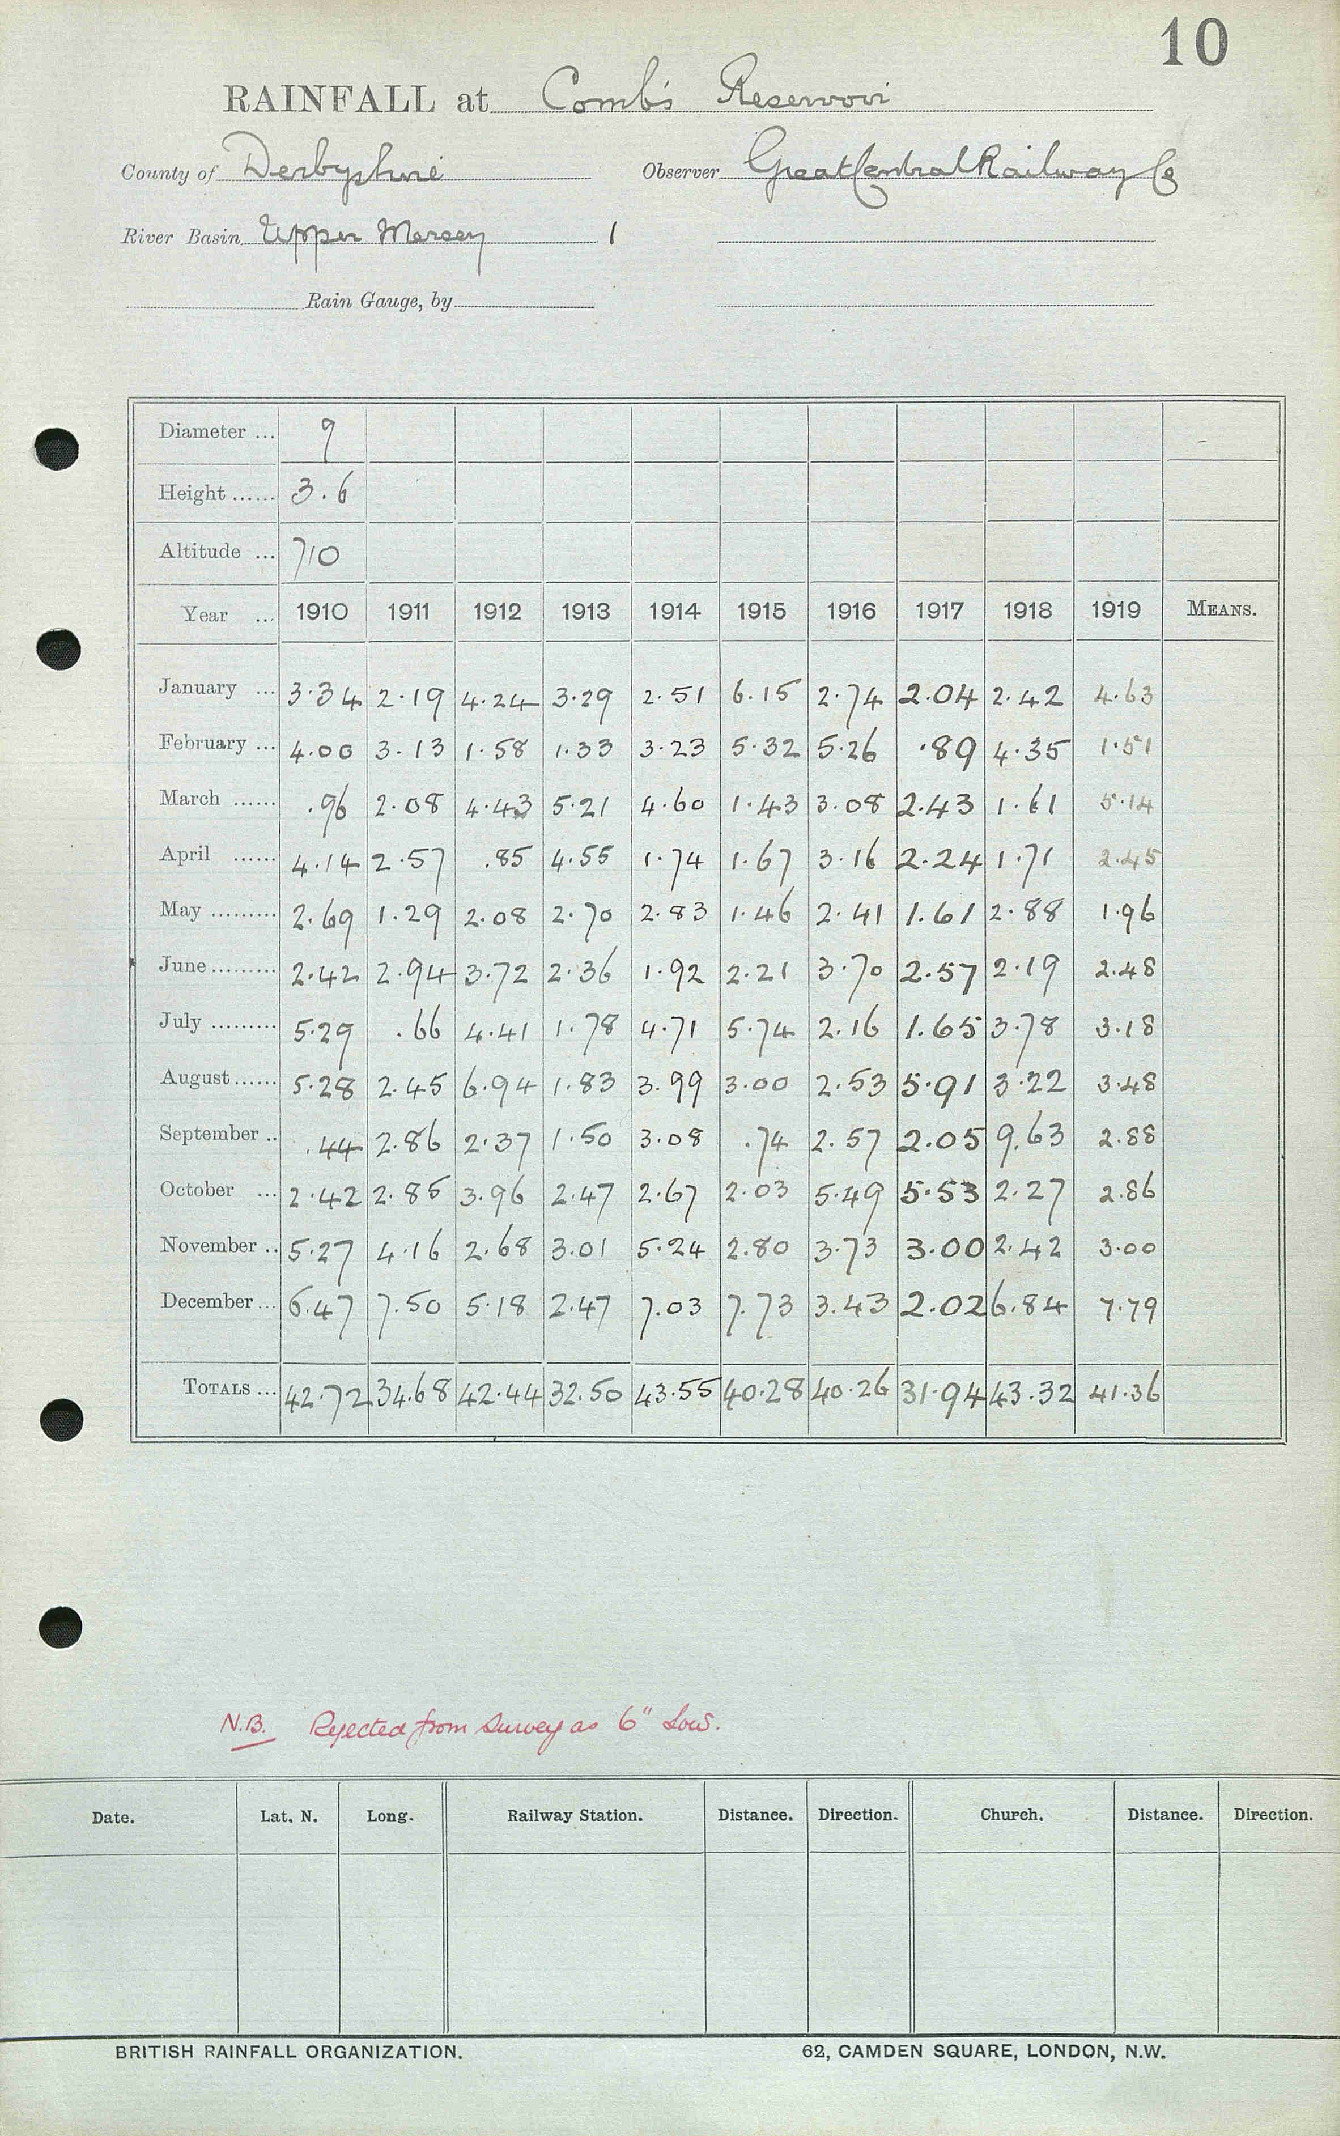 10
RAINFALL at Combs Reservoir
County of Derbyshire Observer Great Central Railway Co
River Basin Upper Mersey 1
Rain Gauge, by
Diameter ... 9
Height ...... 3.6
Altitude ... 710
Year ... 1910 1911 1912 1913 1914 1915 1916 1917 1918 1919 MEANS.
January ... 3.34 2.19 4.24 3.29 2.51 6.15 2.74 2.04 2.42 4.63
February ... 4.00 3.13 1.58 1.33 3.23 5.32 5.26 .89 4.35 1.51
March ...... .96 2.08 4.43 5.21 4.60 1.43 3.08 2.43 1.61 5.14
April ...... 4.14 2.57 .85 4.55 1.74 1.67 3.16 2.24 1.71 2.45
May ......... 2.69 1.29 2.08 2.70 2.83 1.46 2.41 1.61 2.88 1.96
June ......... 2.42 2.94 3.72 2.36 1.92 2.21 3.70 2.57 2.19 2.48
July ......... 5.29 .66 4.41 1.78 4.71 5.74 2.16 1.65 3.78 3.18
August ...... 5.28 2.45 6.94 1.83 3.99 3.00 2.53 5.91 3.22 3.48
September .. .44 2.86 2.37 1.50 3.08 .74 2.57 2.05 9.63 2.88
October ... 2.42 2.85 3.96 2.47 2.67 2.03 5.49 5.53 2.27 2.86
November .. 5.27 4.16 2.68 3.01 5.24 2.80 3.73 3.00 2.42 3.00
December ... 6.47 7.50 5.18 2.47 7.03 7.73 3.43 2.02 6.84 7.79
TOTALS ... 42.72 34.68 42.44 32.50 43.55 40.28 40.26 31.94 43.32 41.36
N.B. Rejected from Survey as 6" Low.
Date. Lat. N. Long. Railway Station. Distance. Direction. Church. Distance. Direction.
BRITISH RAINFALL ORGANIZATION. 62, CAMDEN SQUARE, LONDON, N.W.